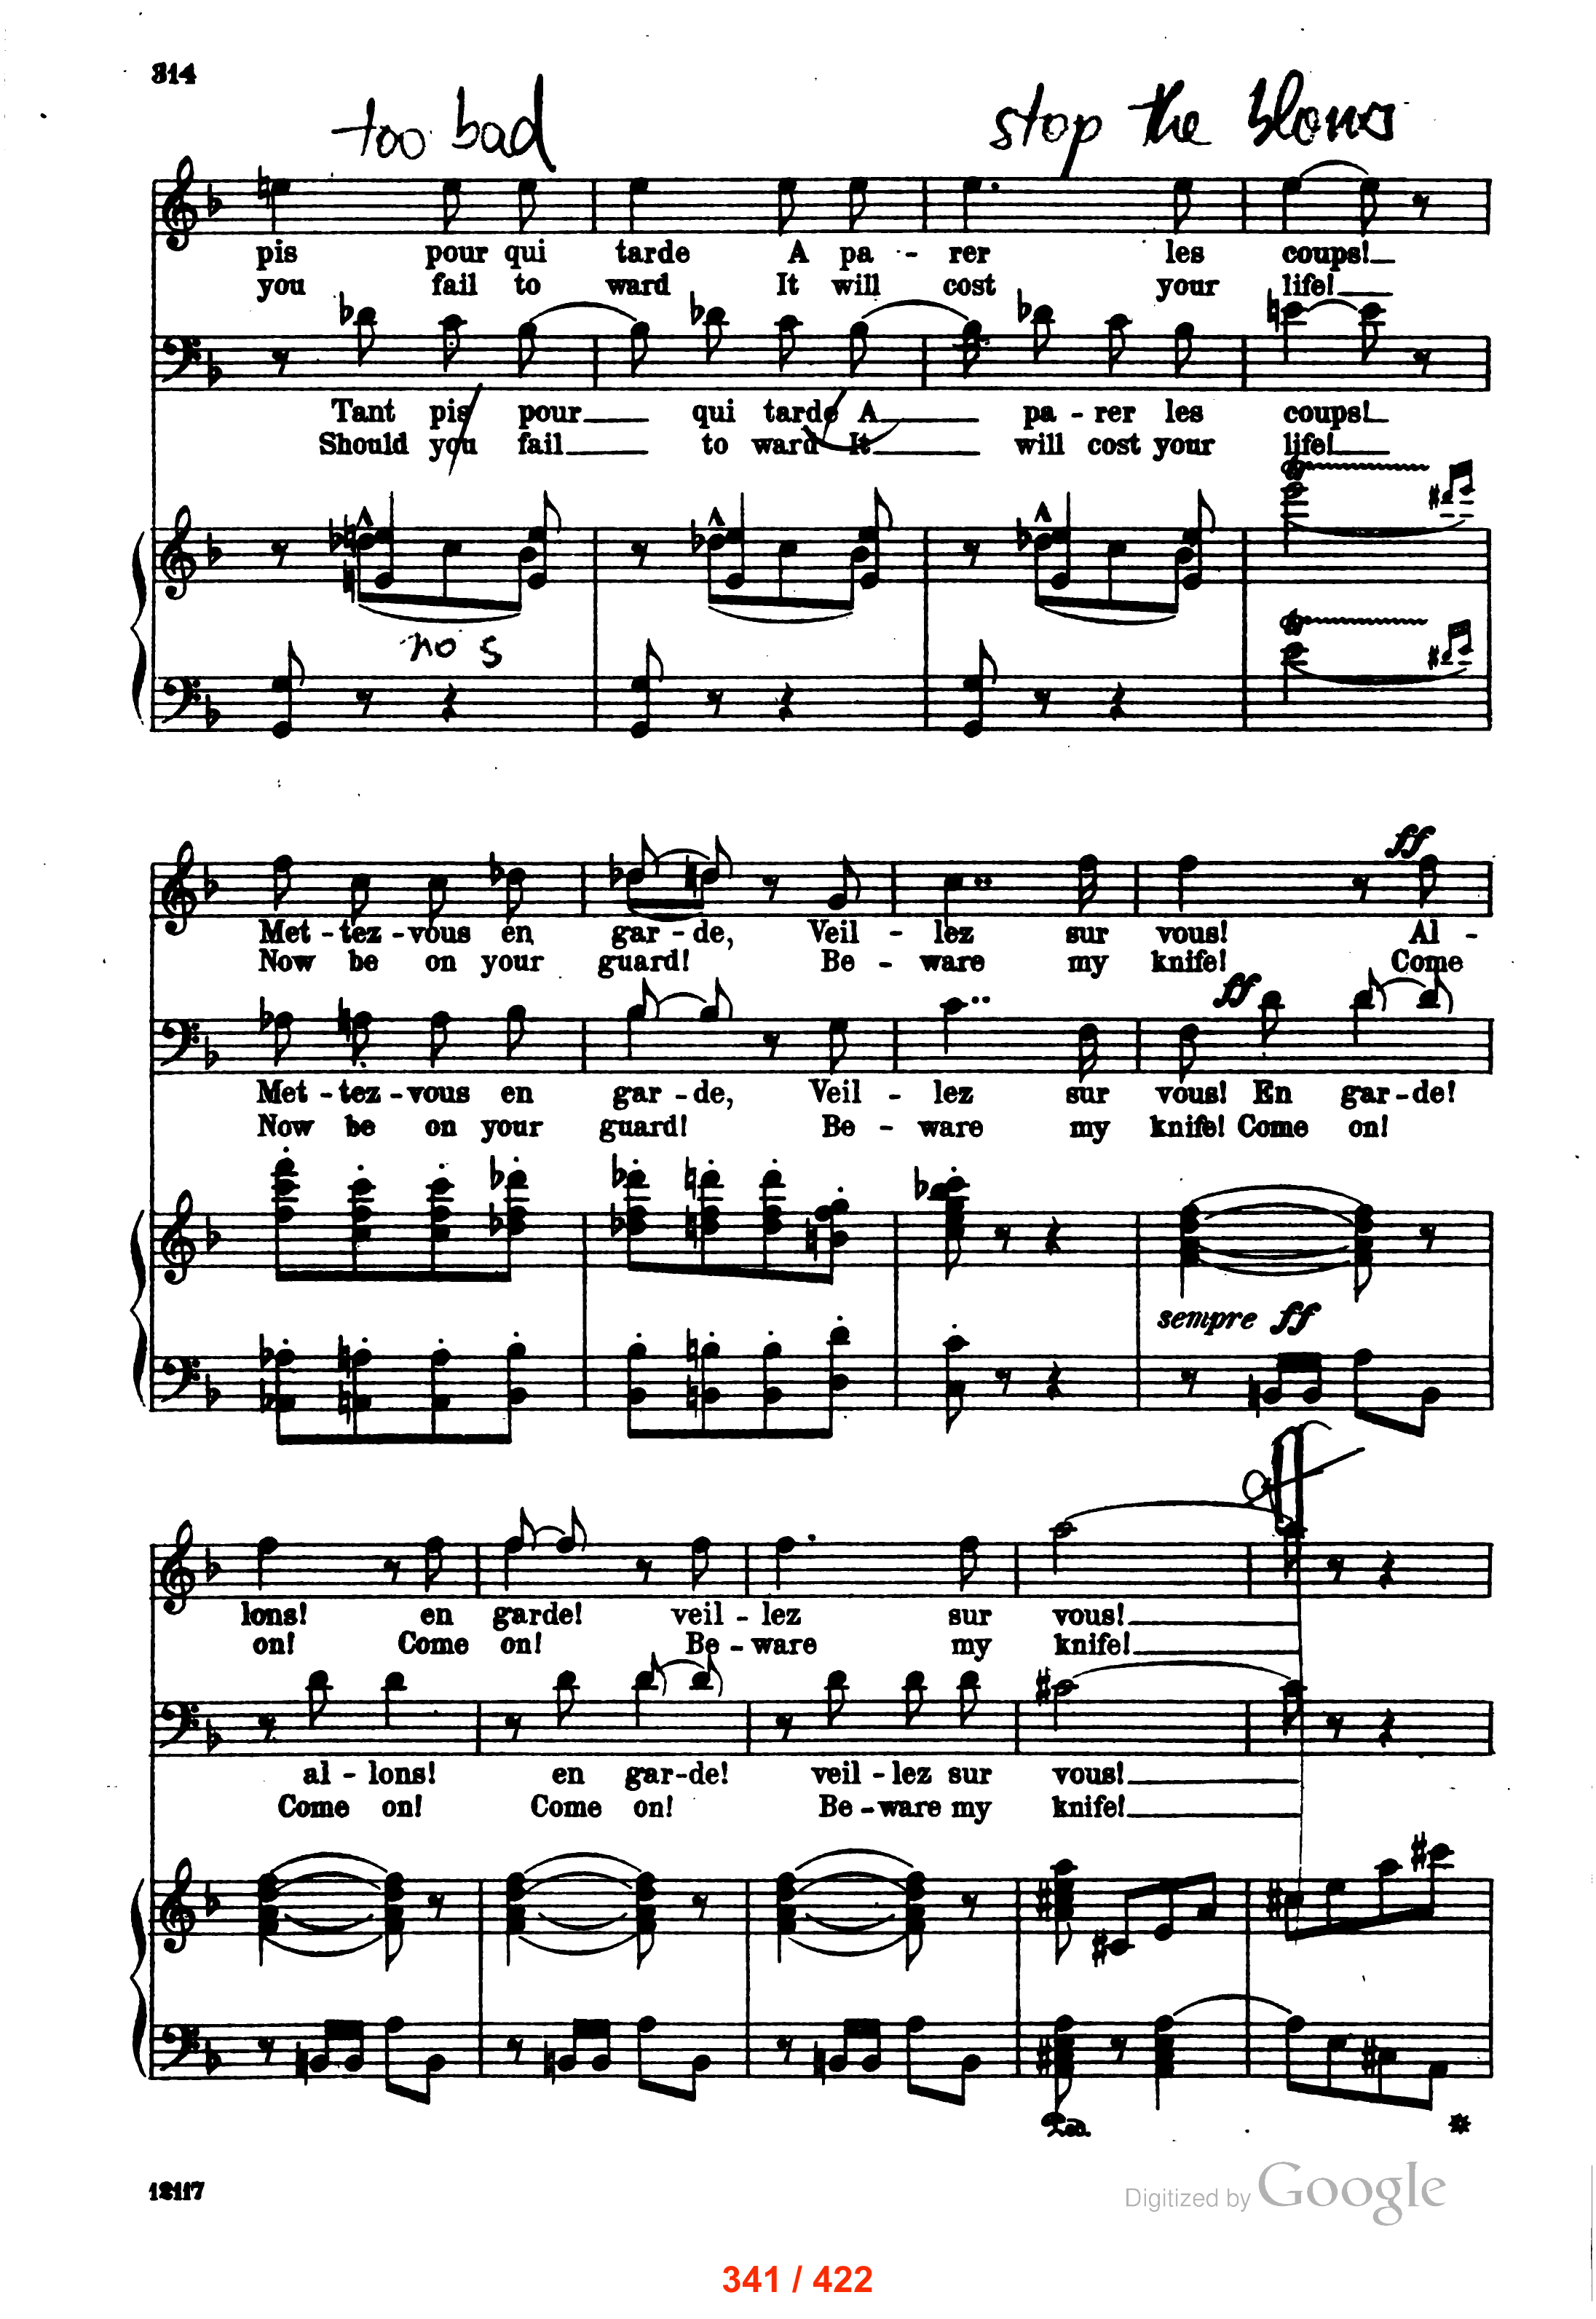 314
too bad
stop the blows
pis pour qui tarde A pa - rer les coups!
you fail to ward It will cost your life!
Tant pis pour qui tarde A pa - rer les coups!
Should you fail to ward It will cost your life!
no s
ff
Met - tez - vous en gar - de, Veil - lez sur vous! Al -
Now be on your guard! Be - ware my knife! Come
ff
Met - tez - vous en gar - de, Veil - lez sur vous! En gar - de!
Now be on your guard! Be - ware my knife! Come on!
sempre ff
lons! en garde! veil - lez sur vous!
on! Come on! Be - ware my knife!
al - lons! en gar - de! veil - lez sur vous!
Come on! Come on! Be - ware my knife!
Ped. *
12117
Digitized by Google
341 / 422